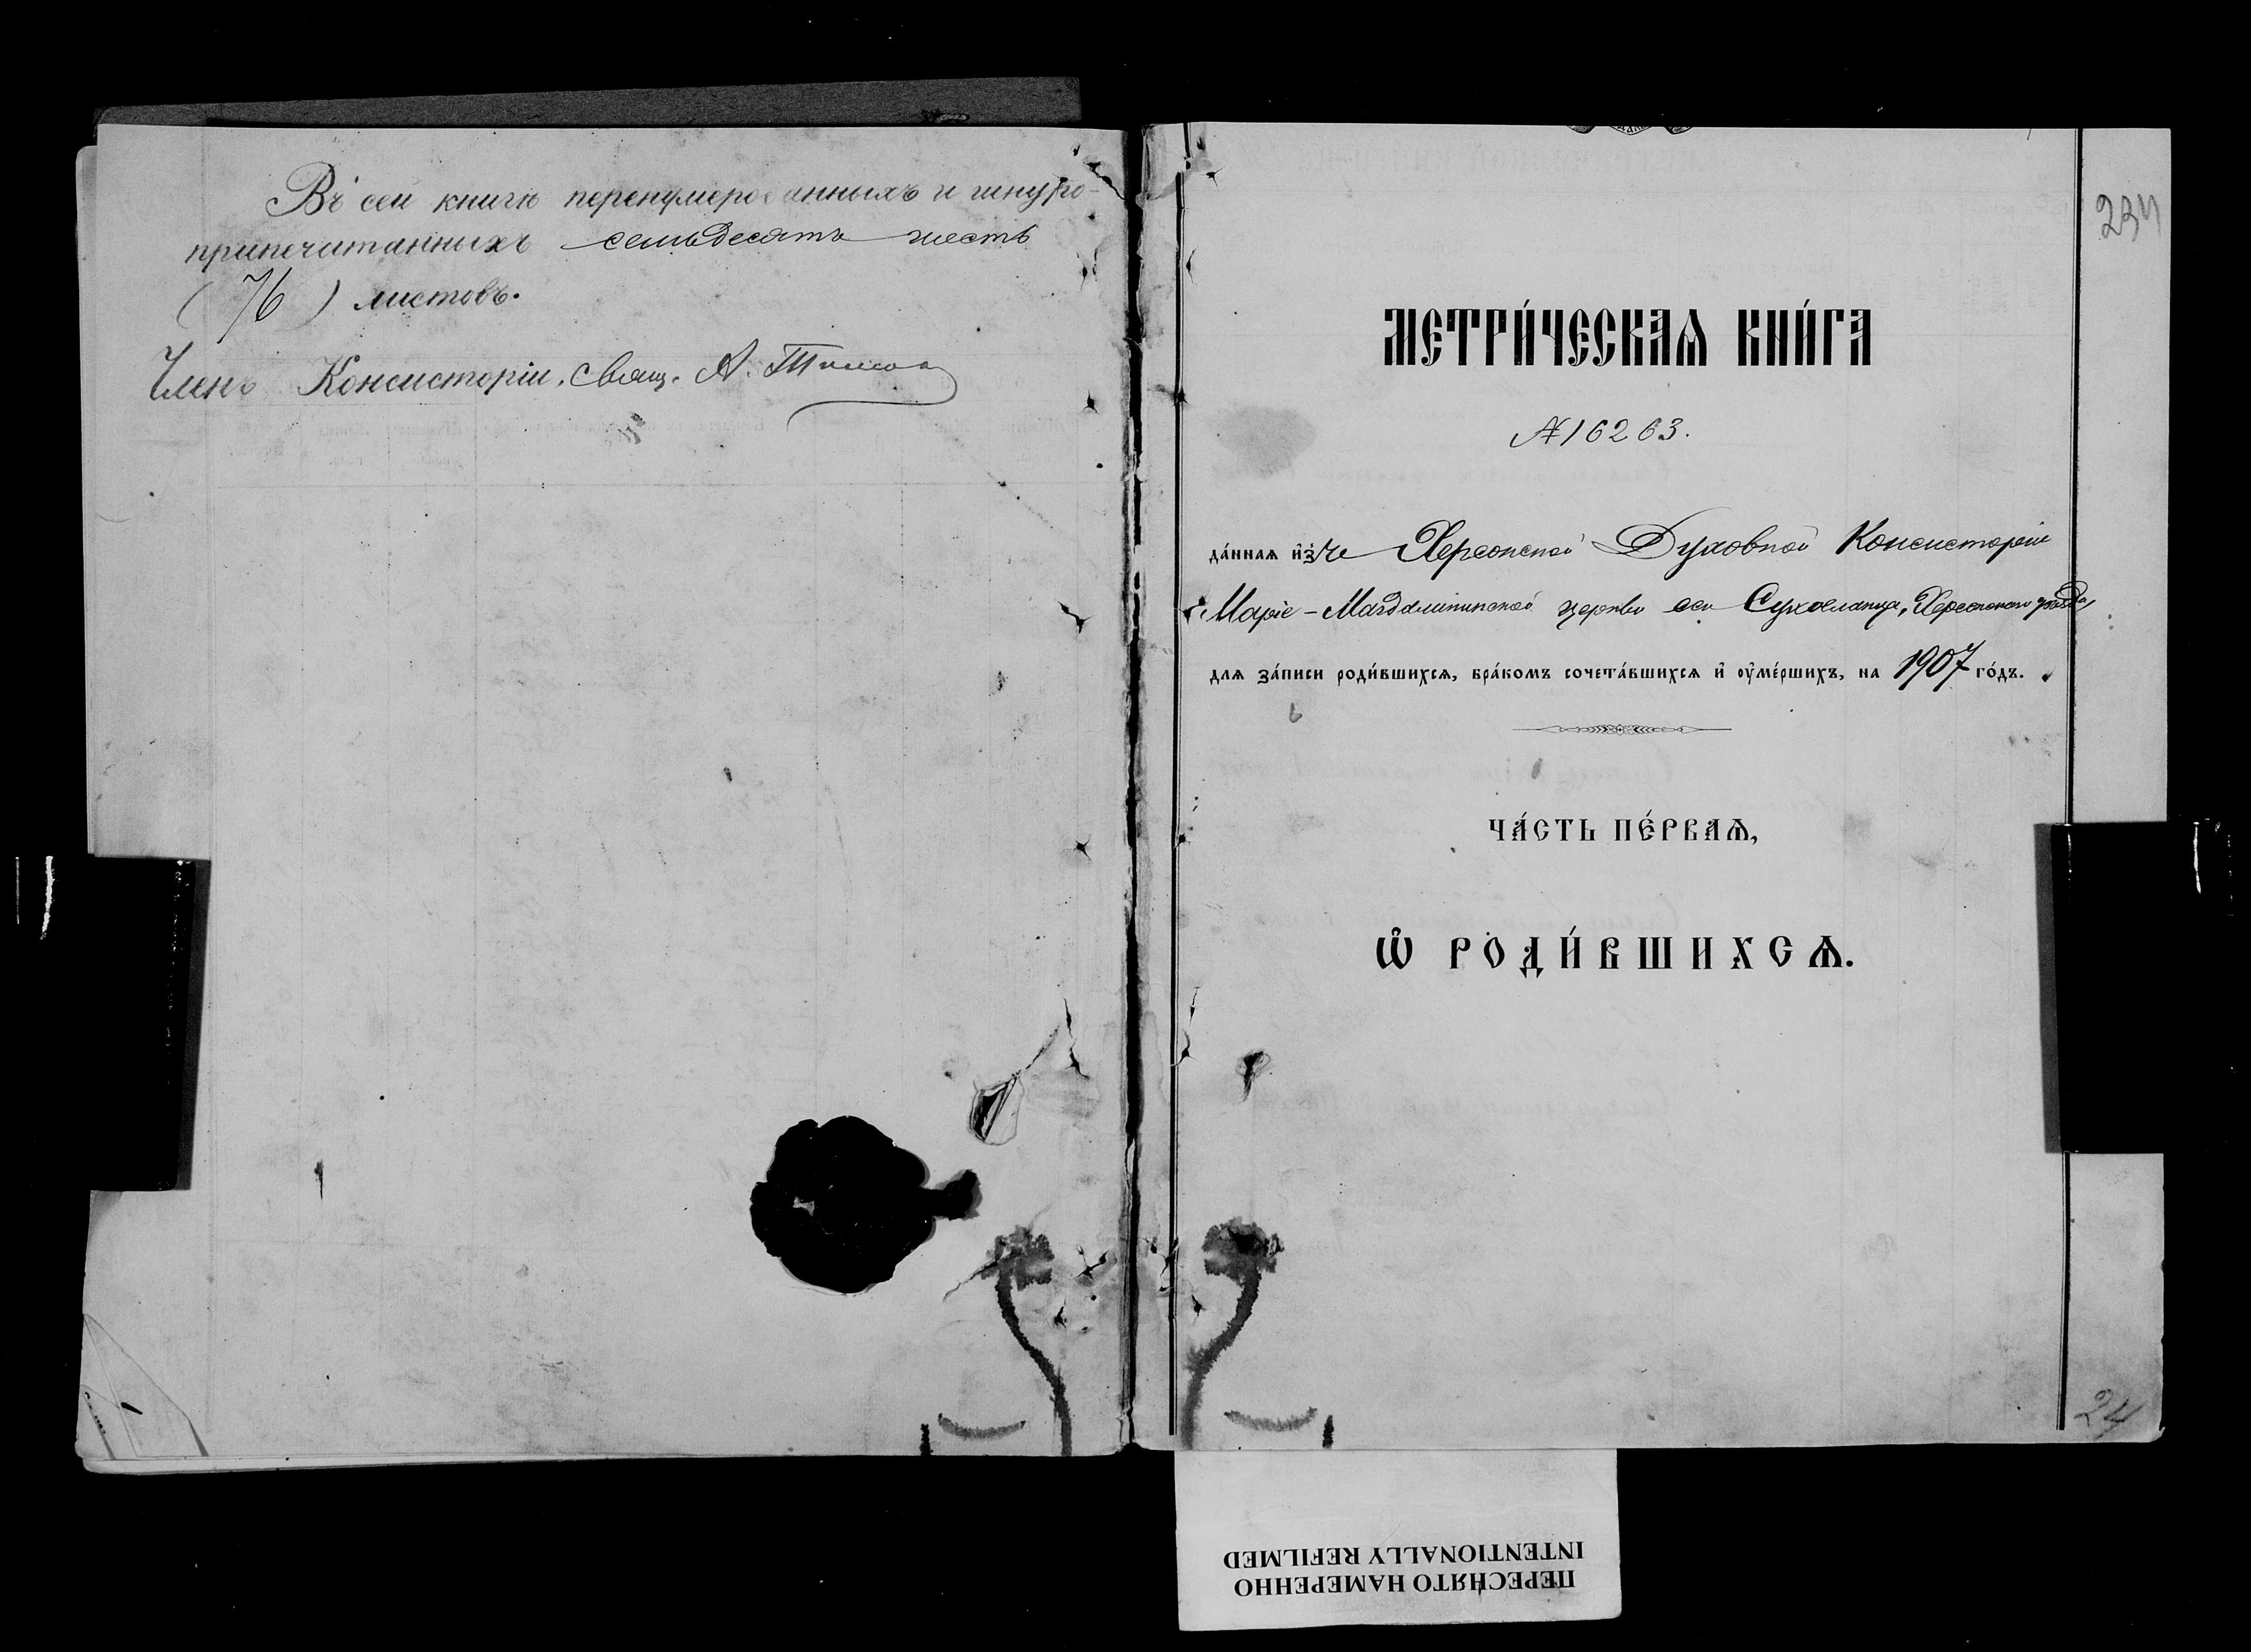 Въ сей книгѣ перенумерованныхъ и шнуро-
припечатанныхъ семьдесятъ шесть
( 76 ) листовъ.
Членъ Консисторіи, свящ. А.
234
МЕТРИ́ЧЕСКАѦ КНИ́ГА
№ 16263.
да́ннаѧ и҆зъ Херсонской Духовной Консисторіи
Маріе-Магдалининской церкви Херсонскаго уѣзда,
длѧ за́писи роди́вшихсѧ, бра́комъ сочета́вшихсѧ и҆ оу҆ме́ршихъ, на 1907 го́дъ.
ЧА́СТЬ ПЕ́РВАѦ,
Ѡ҆ РОДИ́ВШИХСѦ.
24
ПЕРЕСНЯТО НАМЕРЕННО
INTENTIONALLY REFILMED